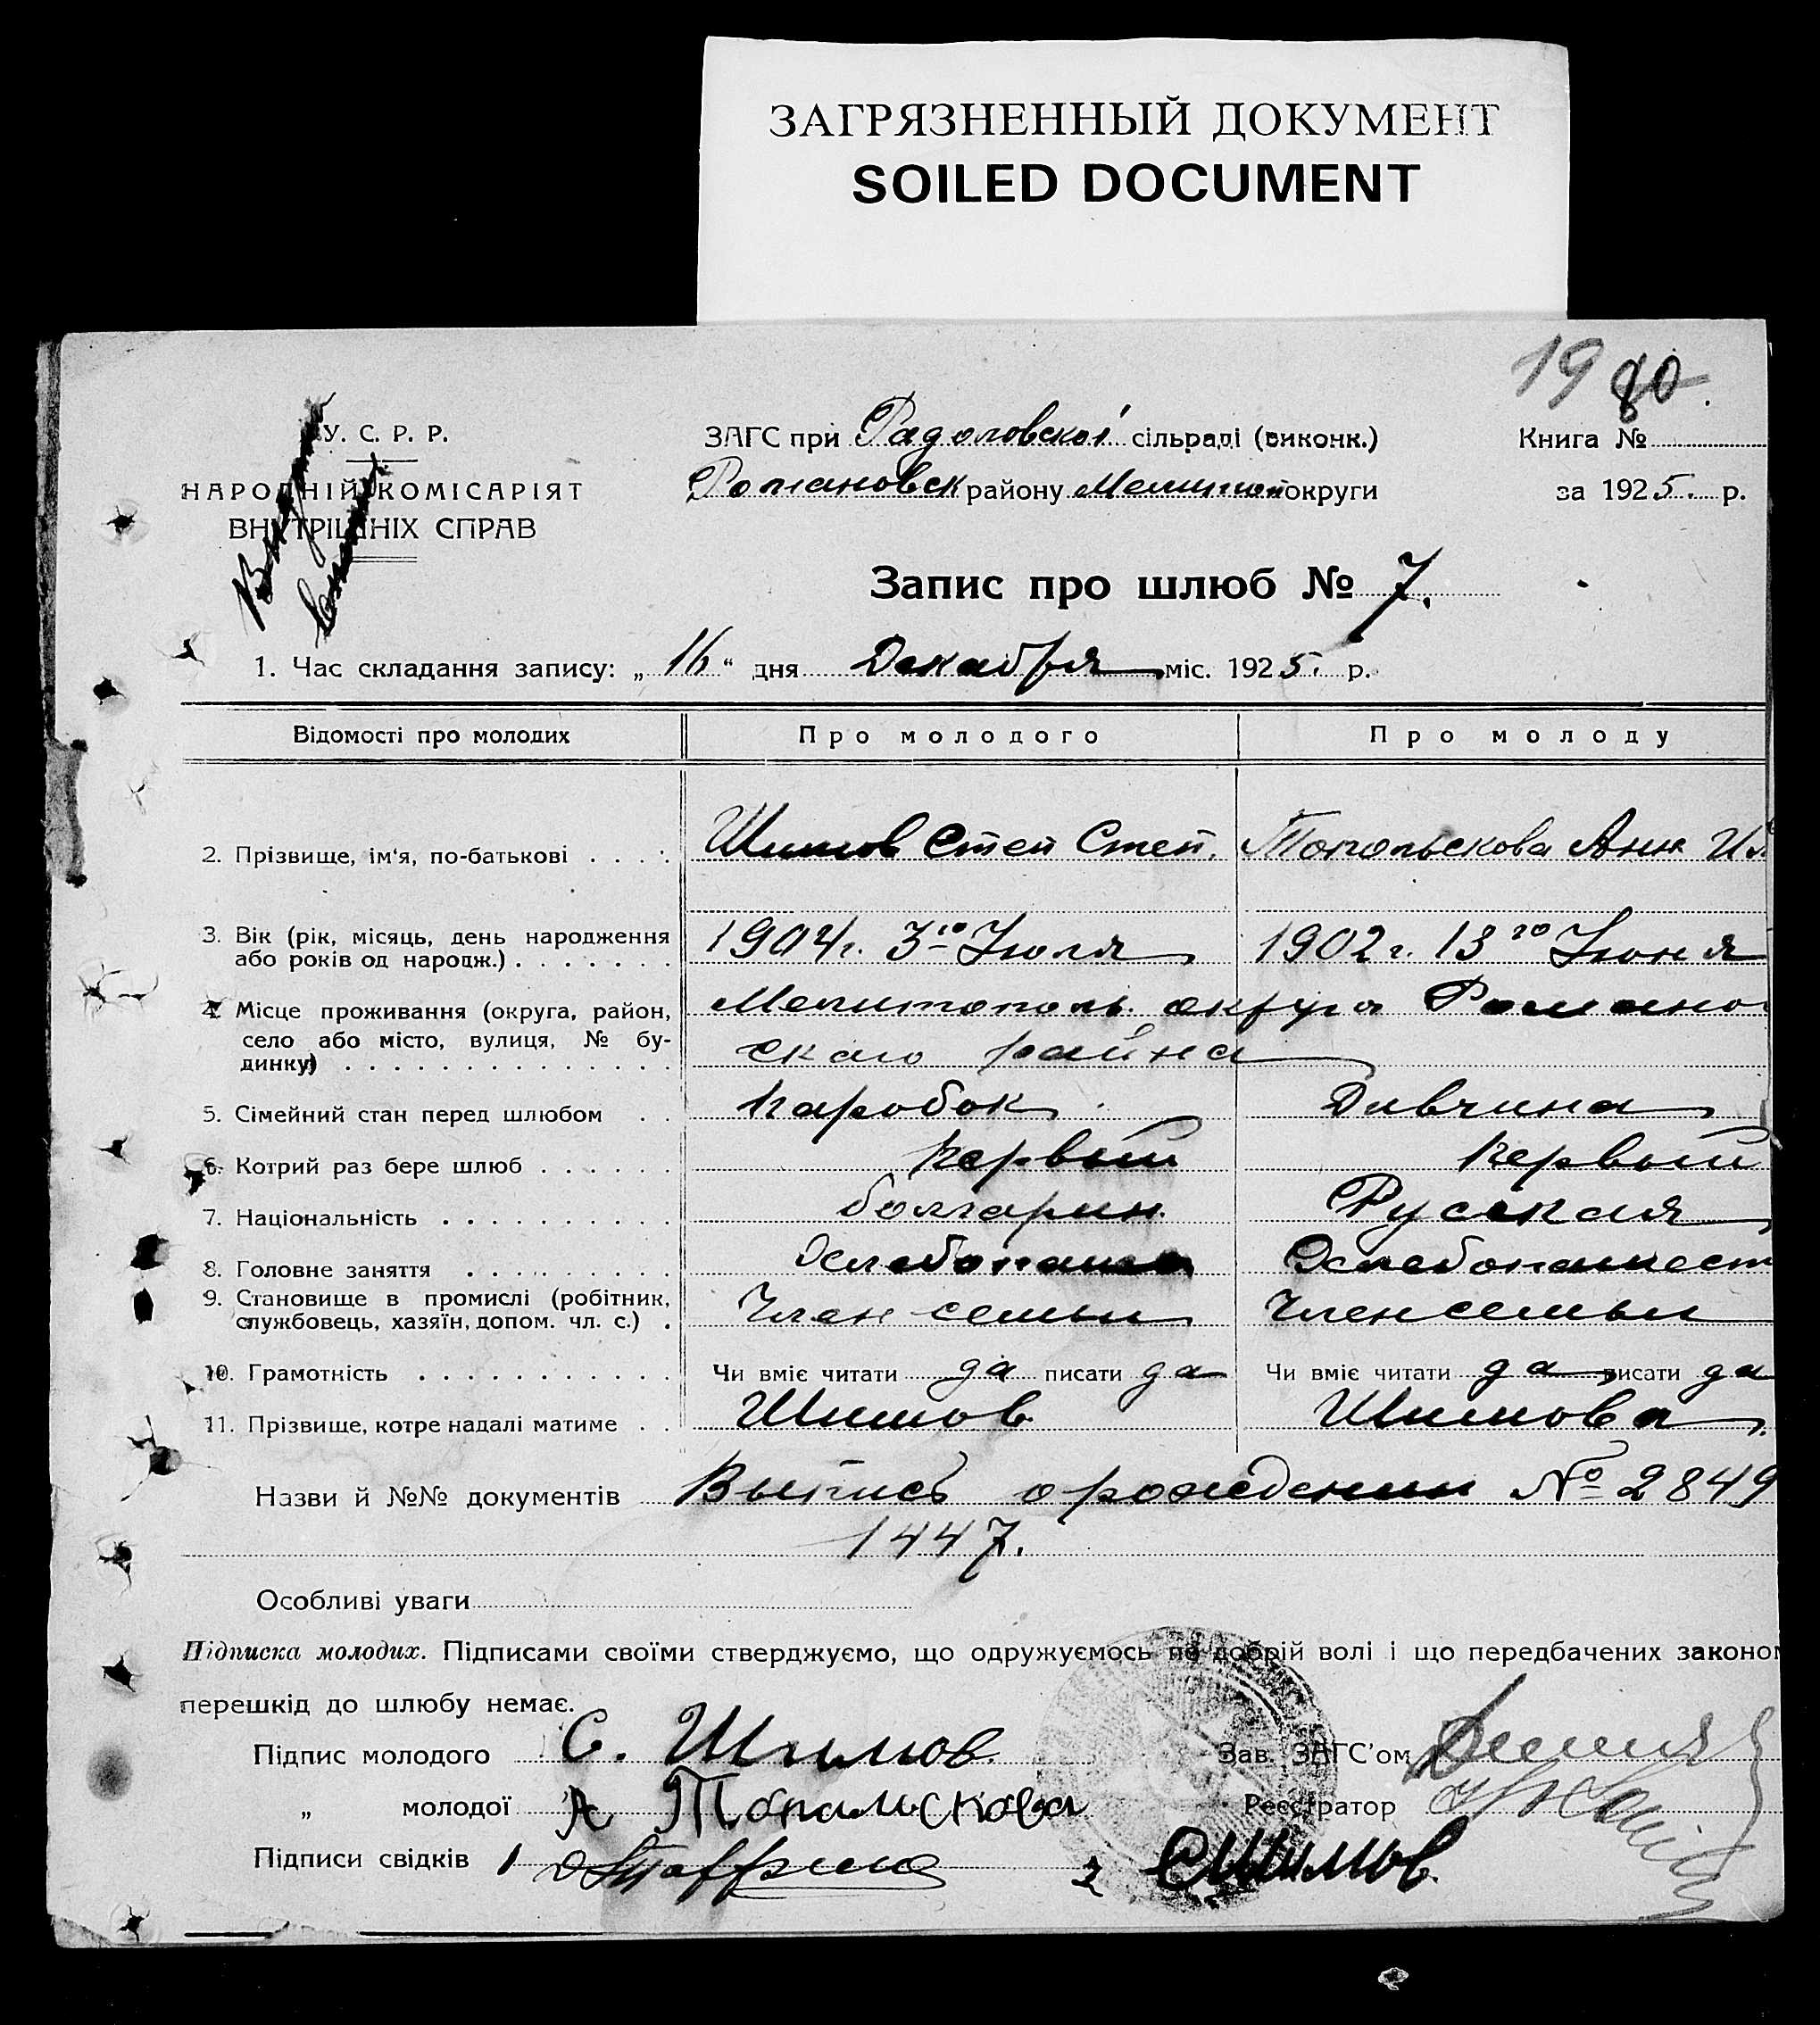 ЗАГРЯЗНЕННЫЙ ДОКУМЕНТ
SOILED DOCUMENT
19 80.
У. С. Р. Р.
НАРОДНІЙ КОМІСАРІЯТ
ВНУТРІШНІХ СПРАВ
ЗАГС при Радоловской сільраді (виконк.)
Романовск району Мелитоп округи
Книга №
за 1925. р.
Запис про шлюб № 7.
1. Час складання запису: „16“ дня Декабря міс. 1925. р.
Відомості про молодих Про молодого Про молоду
2. Прізвище, ім'я, по-батькові . . . . Шишов Степ Степ. Топольскова Анн
3. Вік (рік, місяць, день народження 1904г. 3го Июля 1902г. 13го Июня
або років од народж.) . . . . . . .
4. Місце проживання (округа, район, Мелитополь. округа Романов
село або місто, вулиця, № бу- скаго района
динку) . . . . . . . . . . . . . .
5. Сімейний стан перед шлюбом . . Паробок Дивчина
6. Котрий раз бере шлюб . . . . . . Первый Первый
7. Національність . . . . . . . . . . болгарин. Русская
8. Головне заняття . . . . . . . . .
9. Становище в промислі (робітник, Член семьи Член семьи
службовець, хазяїн, допом. чл. с.) .
10. Грамотність . . . . . . . . . . . Чи вміє читати да писати да Чи вміє читати да писати да
11. Прізвище, котре надалі матиме . . Шишов Шишова
Назви й №№ документів Выпись о рождении № 2849
1447.
Особливі уваги
Підписка молодих. Підписами своїми стверджуємо, що одружуємось по добрій волі і що передбачених законом
перешкід до шлюбу немає.
Підпис молодого С. Шишов Зав. ЗАГС'ом
„ молодої А Топальскова Реєстратор
Підписи свідків 1 2